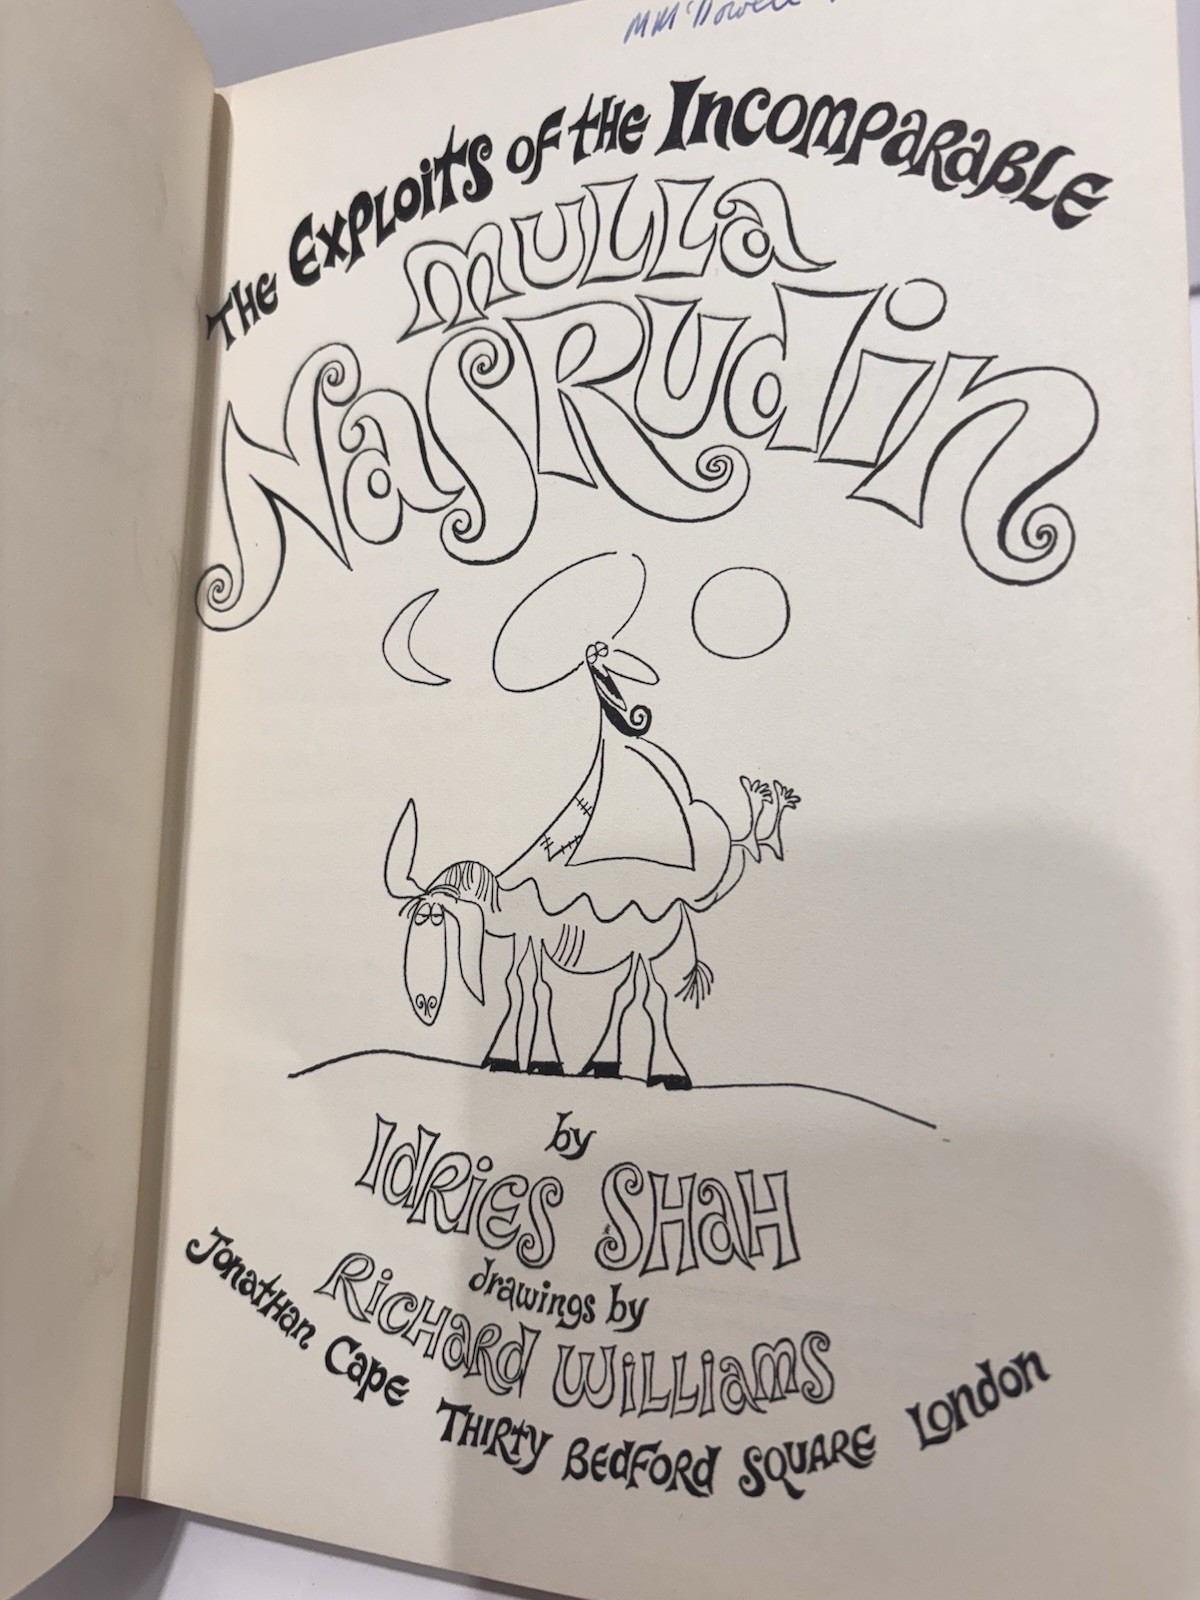 MMcDowell
The Exploits of the Incomparable
Mulla
Nasrudin
by
Idries Shah
drawings by
Richard Williams
Jonathan Cape Thirty Bedford Square London